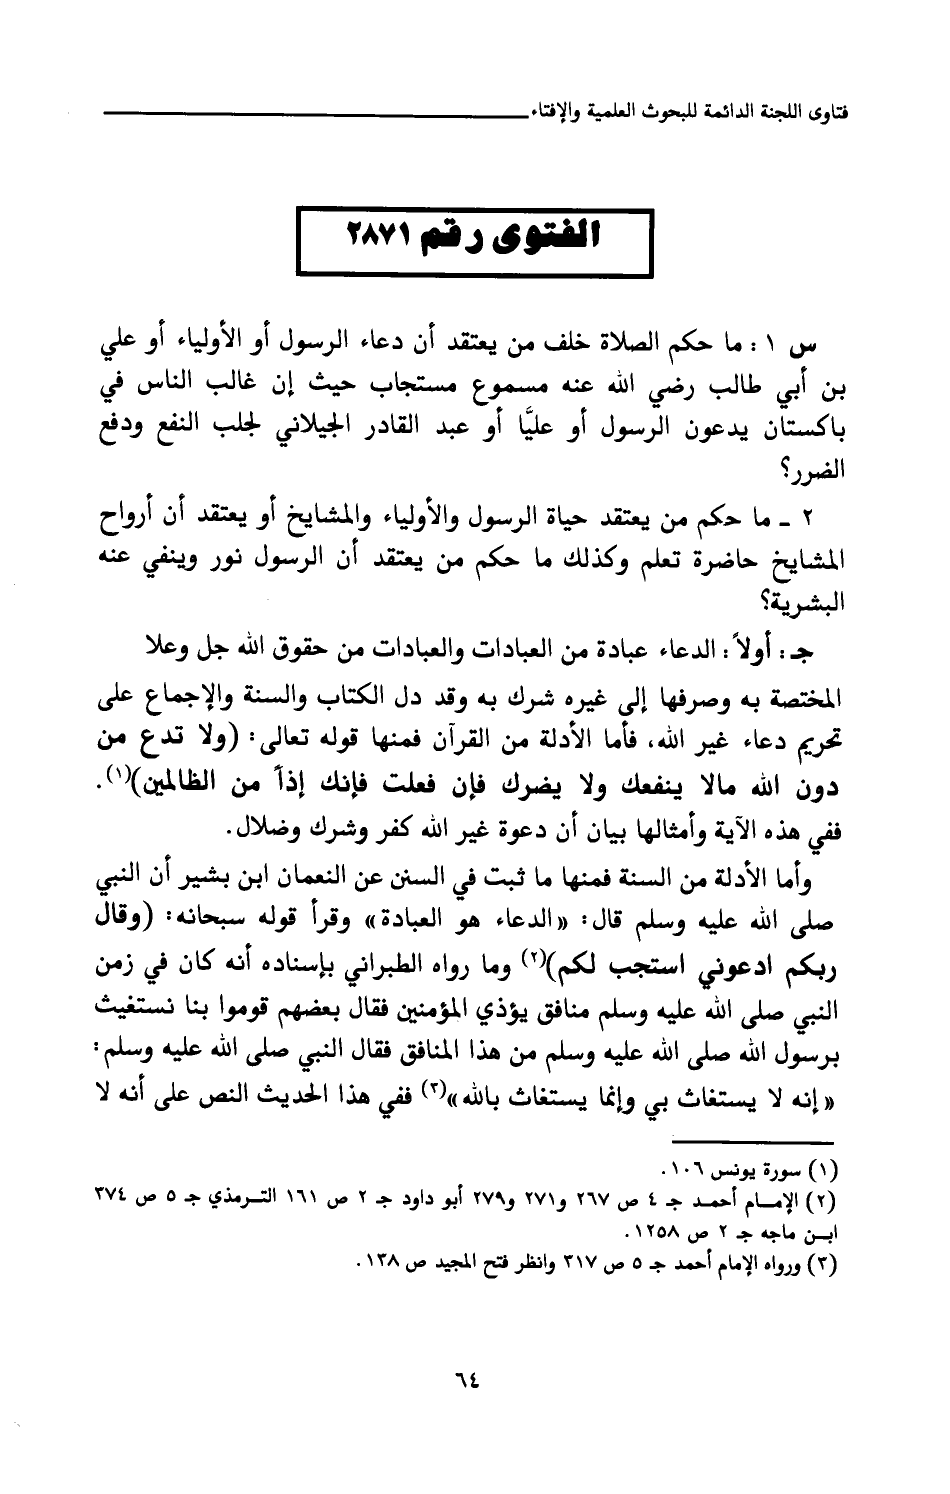 فتاوى اللجنة الدائمة للبحوث العلمية والإفتاء
الفتوى رقم ٢٨٧١
س ١ : ما حكم الصلاة خلف من يعتقد أن دعاء الرسول أو الأولياء أو علي
بن أبي طالب رضي الله عنه مسموع مستجاب حيث إن غالب الناس في
باكستان يدعون الرسول أو عليًّا أو عبد القادر الجيلاني لجلب النفع ودفع
الضرر؟
٢ - ما حكم من يعتقد حياة الرسول والأولياء والمشايخ أو يعتقد أن أرواح
المشايخ حاضرة تعلم وكذلك ما حكم من يعتقد أن الرسول نور وينفي عنه
البشرية؟
جـ : أولاً : الدعاء عبادة من العبادات والعبادات من حقوق الله جل وعلا
المختصة به وصرفها إلى غيره شرك به وقد دل الكتاب والسنة والإجماع على
تحريم دعاء غير الله، فأما الأدلة من القرآن فمنها قوله تعالى: (ولا تدع من
دون الله مالا ينفعك ولا يضرك فإن فعلت فإنك إذاً من الظالمين)(١).
ففي هذه الآية وأمثالها بيان أن دعوة غير الله كفر وشرك وضلال.
وأما الأدلة من السنة فمنها ما ثبت في السنن عن النعمان ابن بشير أن النبي
صلى الله عليه وسلم قال: «الدعاء هو العبادة» وقرأ قوله سبحانه: (وقال
ربكم ادعوني استجب لكم)(٢) وما رواه الطبراني بإسناده أنه كان في زمن
النبي صلى الله عليه وسلم منافق يؤذي المؤمنين فقال بعضهم قوموا بنا نستغيث
برسول الله صلى الله عليه وسلم من هذا المنافق فقال النبي صلى الله عليه وسلم:
«إنه لا يستغاث بي وإنما يستغاث بالله»(٣) ففي هذا الحديث النص على أنه لا
(١) سورة يونس ١٠٦.
(٢) الإمام أحمد جـ ٤ ص ٢٦٧ و٢٧١ و٢٧٩ أبو داود جـ ٢ ص ١٦١ الترمذي جـ ٥ ص ٣٧٤
ابن ماجه جـ ٢ ص ١٢٥٨.
(٣) ورواه الإمام أحمد جـ ٥ ص ٣١٧ وانظر فتح المجيد ص ١٣٨.
٦٤